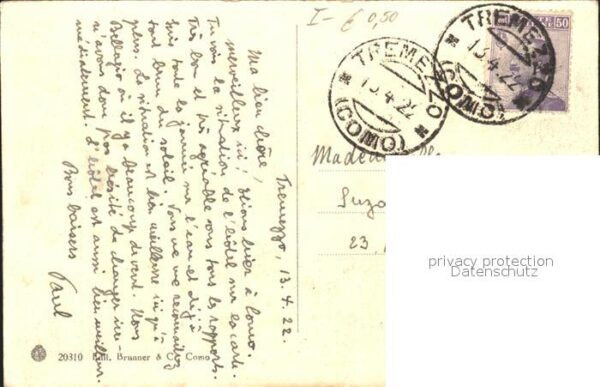 I- € 0,50
TREMEZZO
13.4.22
(COMO)
TREMEZZO
13.4.22
(COMO)
50
Tremezzo, 13. 4. 22
Ma bien chère,
merveilleux ici! Étions hier à Como.
Tu vois la situation de l'hôtel sur la carte.
Très bon et très agréable sous tous les rapports.
Suis toute la journée sur l'eau et déjà
tout brun du soleil. Vous ne me
plus. La situation est bien meilleure ici qu'à
Bellagio où il y a beaucoup de vent. Nous
n'avons donc pas hésité de changer immé-
médiatement. L'hôtel est aussi bien meilleur.
Bons baisers
Paul
23,
20310 Edit. Brunner & C. Como
privacy protection
Datenschutz